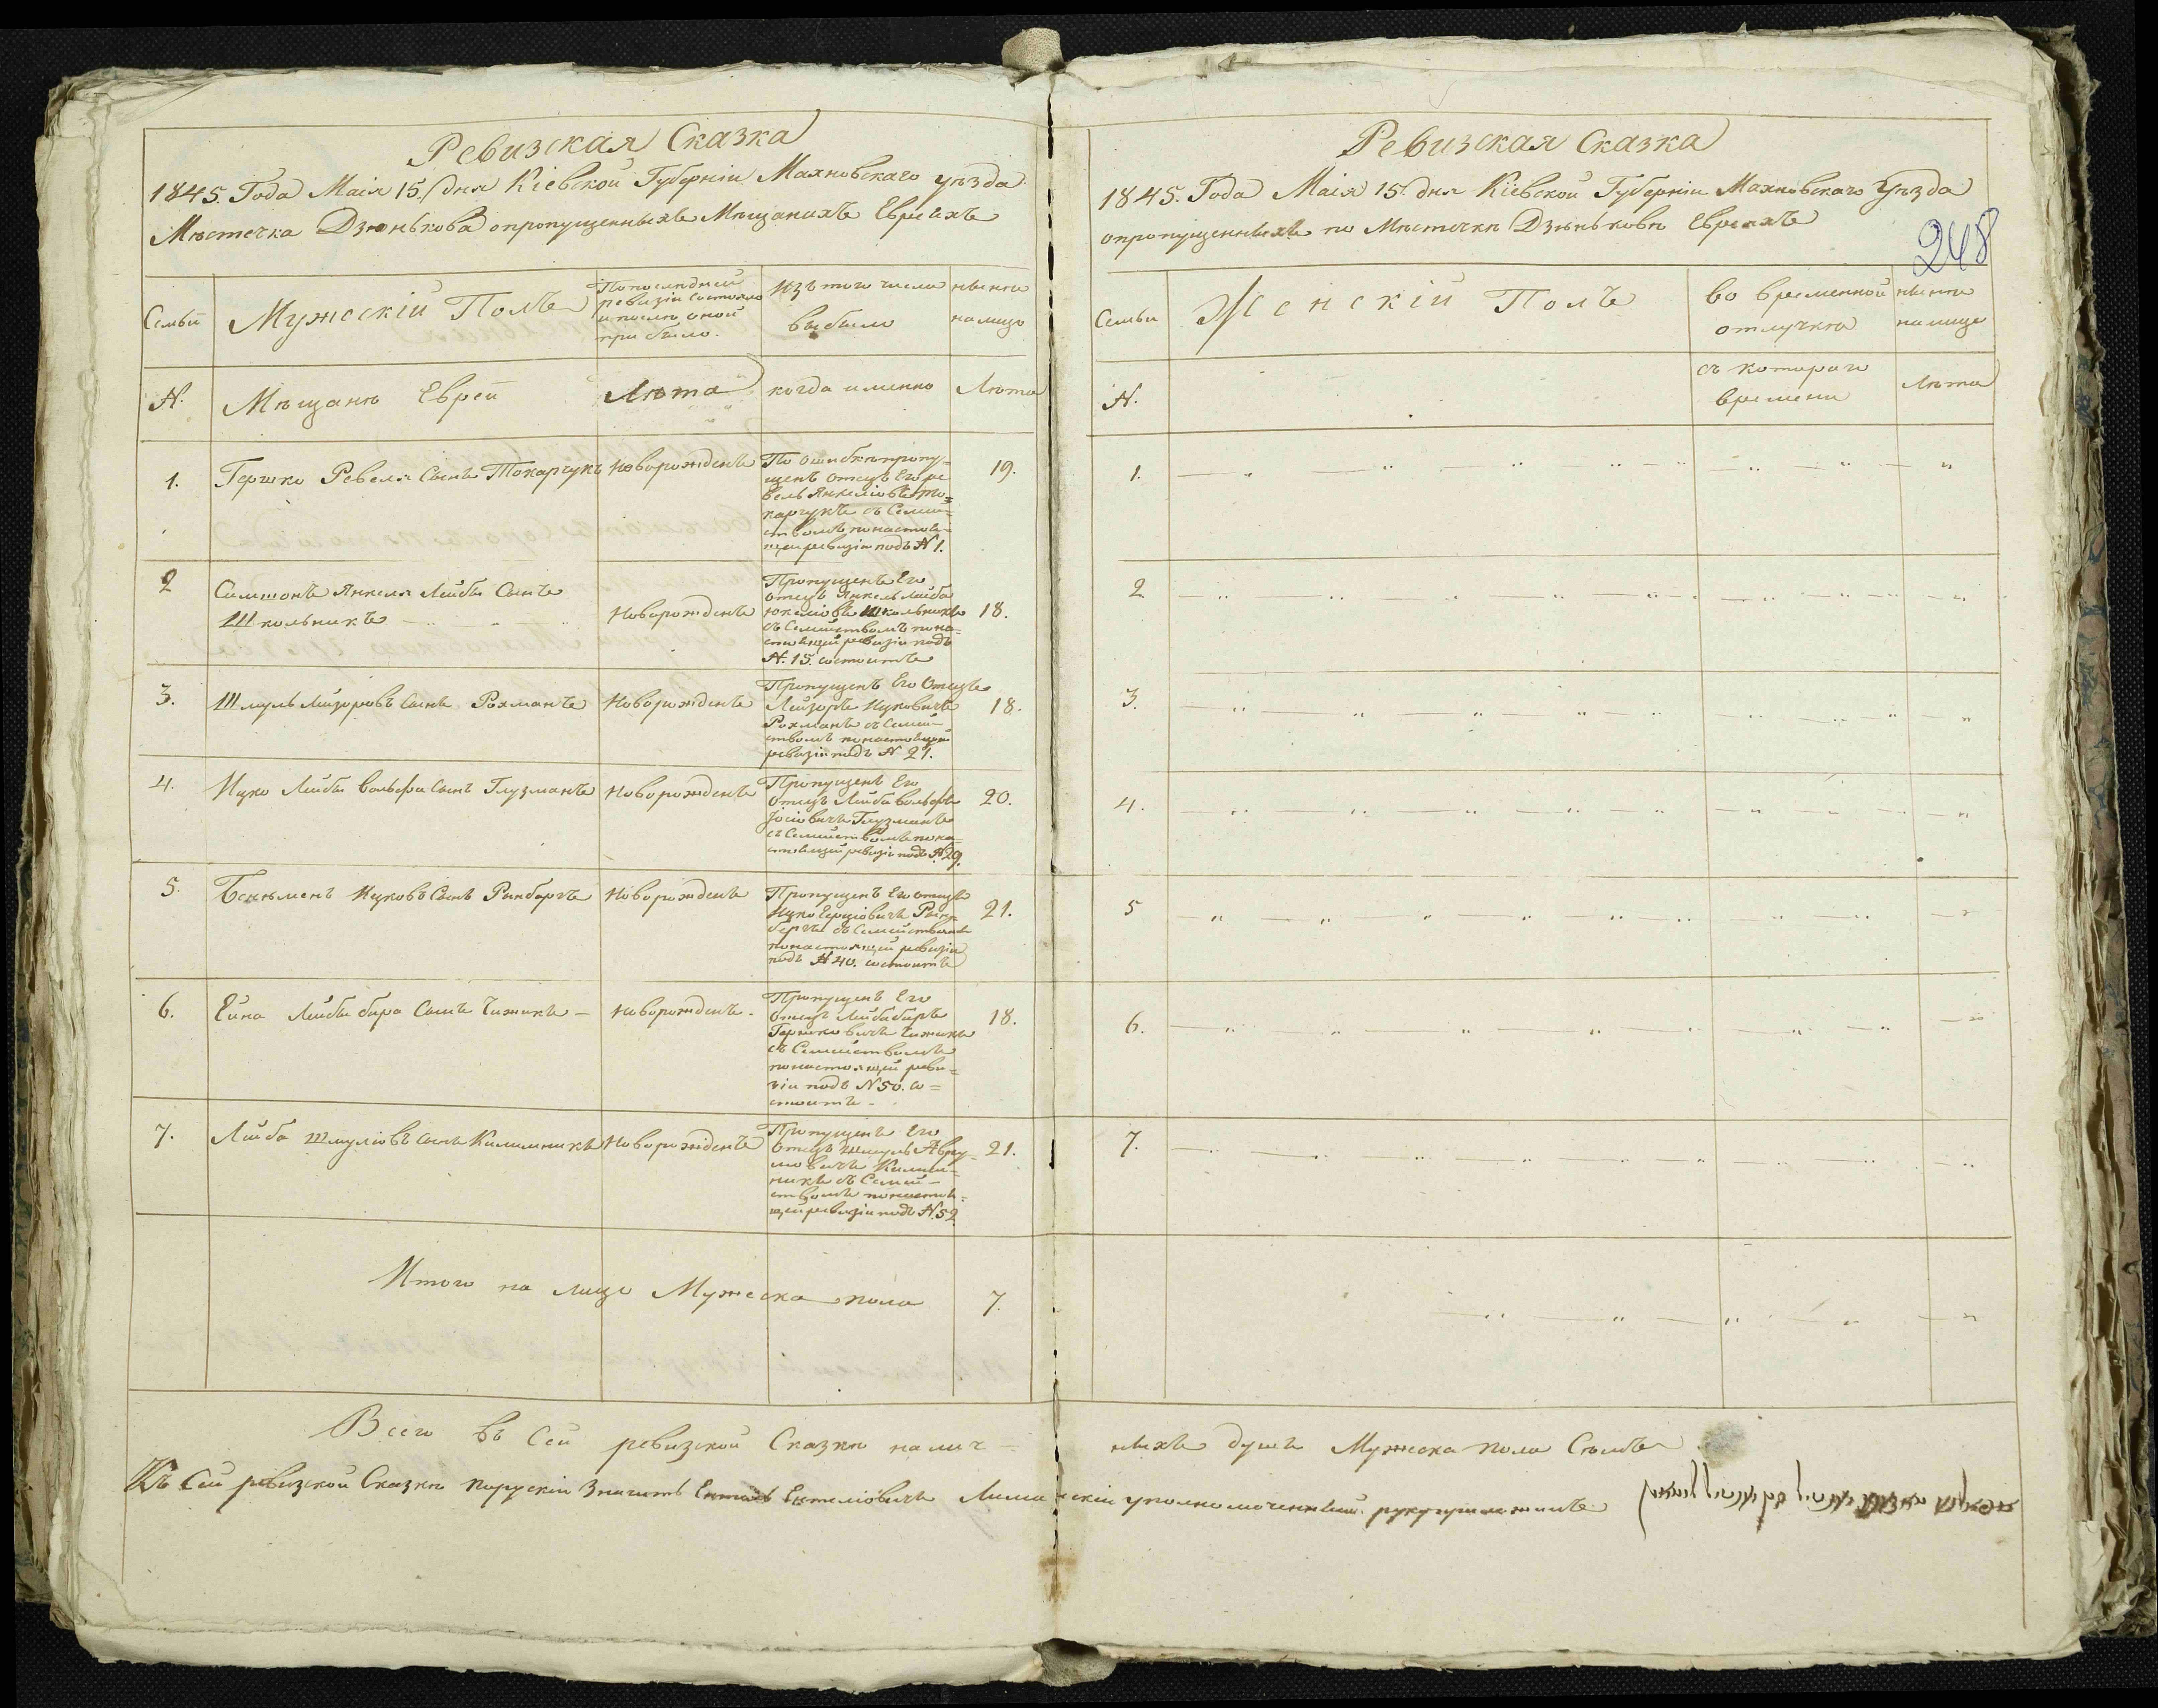 Ревизская Сказка
1845. Года Маія 15. дня Кіевской Губерніи Махновскаго уѣзда
Мѣстечка Дзюнькова опропущенныхъ Мѣщанихъ Евреяхъ
Семьи
Мужескій Полъ
По последней
ревизіи состояло
и послѣ оной
прибыло.
Изъ того числа
выбыло
нынѣ
налицо
N.
Мѣщанѣ Евреи
Лѣта
когда именно
Лѣта
1.
Гершко Ревеля Сынъ Токарчукъ
Новорожденъ
По ошибкѣ пропу-
щенъ отецъ Его Ре
вель Янкеліовъ То=
карчукъ съ Семей=
ствомъ понастоя-
щей ревизіи подъ N 1.
19.
2
Симшонъ Янкеля Лейбы Сынъ
Школьникъ
Новорожденъ
Пропущенъ Его
отецъ Янкель Лейба
Школьникъ
съ Семействомъ пона=
стоящей ревизіи подъ
N. 15. состоитъ
18.
3.
Шмуль Лейзоровъ Сынъ Рохманъ
Новорожденъ
Пропущенъ Его Отецъ
Лейзоръ Ицковичъ
Рохманъ съ Семей-
ствомъ понастоящей
ревизіи подъ N 21.
18.
4.
Ицко Лейбы Вольфа Сынъ Глузманъ
Новорожденъ
Пропущенъ Его
отецъ Лейба Вольфъ
Іосіовичъ Глузманъ
съ Семействомъ пона-
стоящей ревизіи подъ N 29.
20.
5.
Беньменъ Ицковъ Сынъ Ринбергъ
Новорожденъ
Пропущенъ Его отецъ
Ицко Рин-
бергъ съ Семействомъ
понастоящей ревизіи
подъ N 40. состоитъ
21.
6.
Ейна Лейбы бира Сынъ Чижикъ
Новорожденъ.
Пропущенъ Его
отецъ Лейба биръ
Гершковичъ Чижикъ
съ Семействомъ
понастоящей реви=
зіи подъ N 50. со=
стоитъ
18.
7.
Лейба Шмуліовъ Сынъ Килимникъ
Новорожденъ
Пропущенъ Его
отецъ Шмуль Авру-
мовичъ Килим-
никъ съ Семей-
ствомъ понастоя=
щей ревизіи подъ N 52
21.
Итого на лицо Мужеска пола
7.
Всего въ Сей ревизской Сказкѣ налич=
Къ Сей ревизской Сказкѣ
Ревизская Сказка
1845. Года Маія 15. дня Кіевской Губерніи Махновскаго Уѣзда
опропущенныхъ по Мѣстечкѣ Дзюньковѣ Евреяхъ
248
Семьи
Женскій Полъ
во временной
отлучкѣ
нынѣ
налицо
N.
съ котораго
времени
Лѣта
1.
2
3.
4.
5
6.
7.
ныхъ душъ Мужеска пола Сѣмъ
уполномоченный